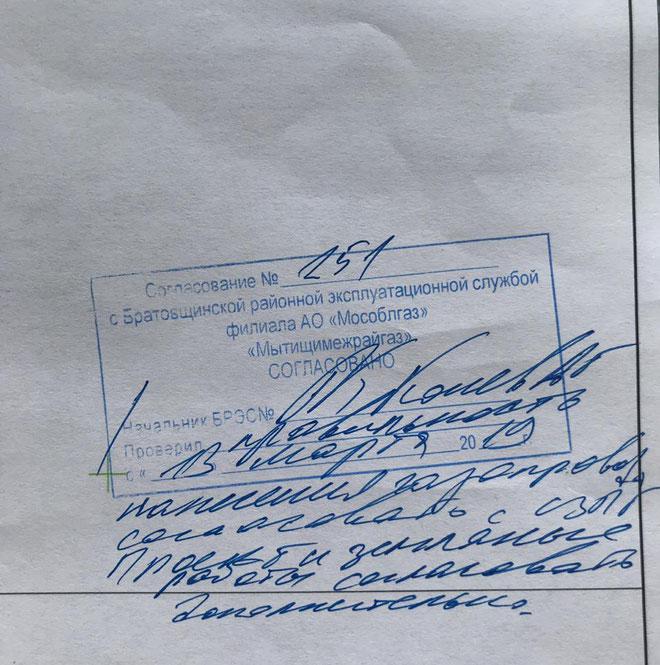 Согласование № 151
с Братовщинской районной эксплуатационной службой
филиала АО «Мособлгаз»
«Мытищимежрайгаз»
СОГЛАСОВАНО
Начальник БРЭС№
Проверил правильность
с « 13 марта 2019 г.
нанесения газопровод
согласовать с
Проект и земляные
работы согласовать
дополнительно.